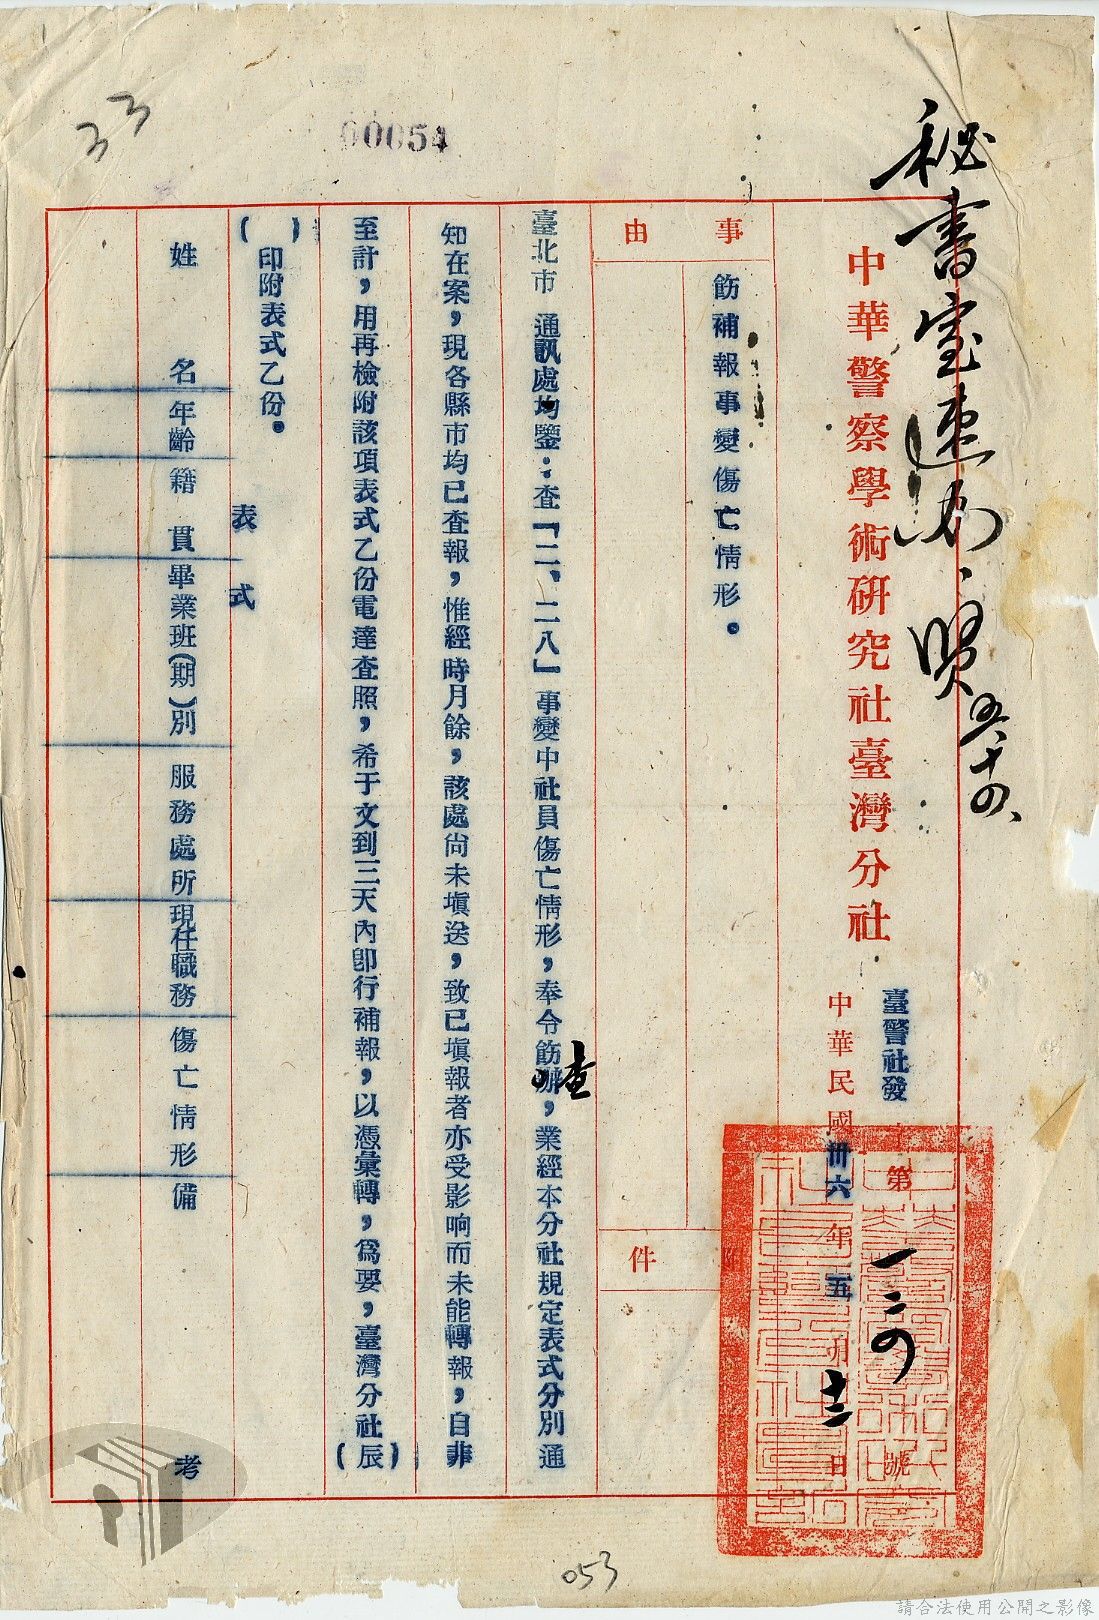 33
00054
秘書室速办、
五、十四、
中華警察學術研究社臺灣分社
臺警社發 第一二四號
中華民國卅六年五月十三日
事由
飭補報事變傷亡情形。
附件
臺北市 通訊處均鑒：查「二、二八」事變中社員傷亡情形，奉令飭查辦，業經本分社規定表式分別通
知在案，現各縣市均已查報，惟經時月餘，該處尚未填送，致已填報者亦受影响而未能轉報，自非
至計，用再檢附該項表式乙份電達查照，希于文到三天內卽行補報，以憑彙轉，爲要，臺灣分社（辰）
（ ）印附表式乙份。
表式
姓名 年齡 籍貫 畢業班(期)別 服務處所 現任職務 傷亡情形 備考
053
請合法使用公開之影像